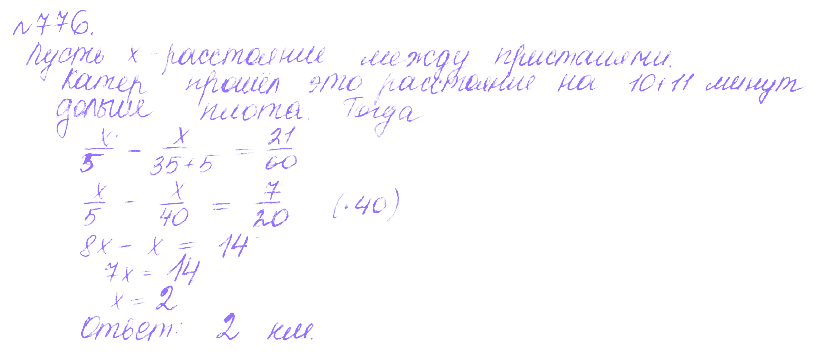 №776.
Пусть x - расстояние между пристанями.
Катер прошёл это расстояние на 10+11 минут
дольше плота. Тогда
x/5 - x/(35+5) = 21/60
x/5 - x/40 = 7/20 (·40)
8x - x = 14
7x = 14
x = 2
Ответ: 2 км.